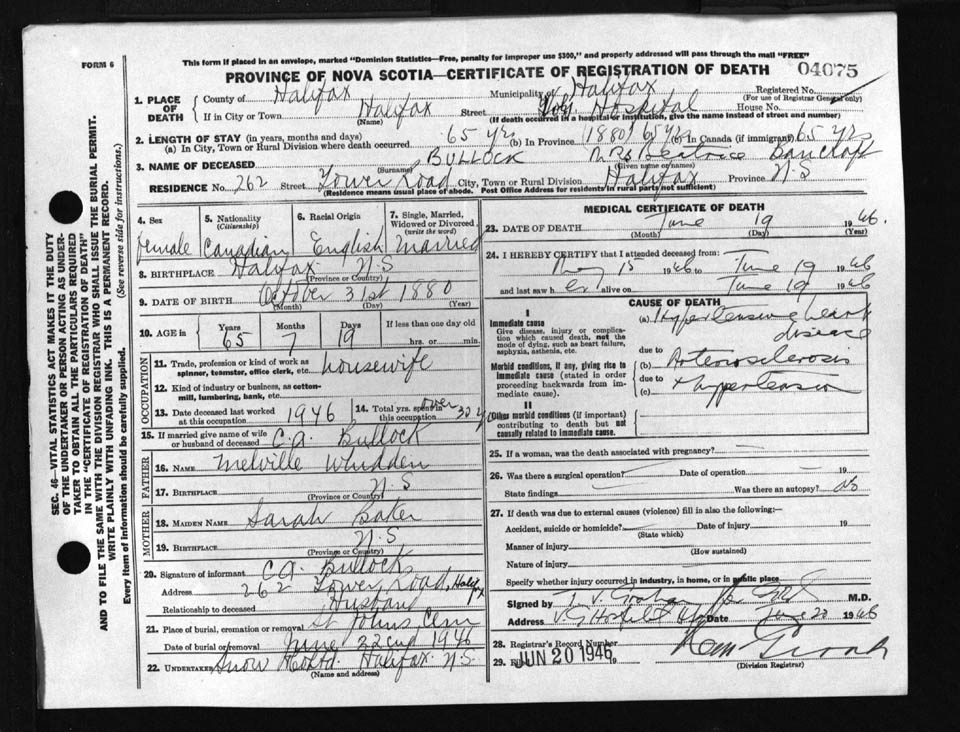 FORM 6
This form if placed in an envelope, marked "Dominion Statistics—Free, penalty for improper use $300," and properly addressed will pass through the mail "FREE"
PROVINCE OF NOVA SCOTIA—CERTIFICATE OF REGISTRATION OF DEATH 04075
1. PLACE OF DEATH
County of Halifax Municipality of Halifax Registered No.
(For use of Registrar General only)
If in City or Town Halifax Street Hospital House No.
(Name) (If death occurred in a hospital or institution, give the name instead of street and number)
2. LENGTH OF STAY (in years, months and days)
(a) In City, Town or Rural Division where death occurred 65 yrs (b) In Province (1880) 65 yrs (c) in Canada (if immigrant) 65 yrs
3. NAME OF DECEASED BULLOCK Mrs Bancroft
(Surname) (Given name or names)
RESIDENCE No. 262 Street Tower Road City, Town or Rural Division Halifax Province N.S
(Residence means usual place of abode. Post Office Address for residents in rural parts not sufficient)
4. Sex
Female
5. Nationality
(Citizenship)
Canadian
6. Racial Origin
English
7. Single, Married, Widowed or Divorced
(write the word)
Married
8. BIRTHPLACE Halifax N.S
(Province or Country)
9. DATE OF BIRTH October 31st 1880
(Month) (Day) (Year)
10. AGE in Years Months Days If less than one day old
65 7 19 hrs. or min.
OCCUPATION
11. Trade, profession or kind of work as spinner, teamster, office clerk, etc. housewife
12. Kind of industry or business, as cotton-mill, lumbering, bank, etc.
13. Date deceased last worked at this occupation 1946
14. Total yrs. spent in this occupation over 30 y
15. If married give name of wife or husband of deceased C.A. Bullock
FATHER
16. NAME Melville Whidden
17. BIRTHPLACE N.S
(Province or Country)
MOTHER
18. MAIDEN NAME Sarah Baker
19. BIRTHPLACE N.S
(Province or Country)
20. Signature of informant C.A. Bullock
Address 262 Tower Road, Halifax
Relationship to deceased Husband
21. Place of burial, cremation or removal St Johns Cem
Date of burial or removal June 22nd 1946
22. UNDERTAKER Snow Halifax N.S.
(Name and address)
MEDICAL CERTIFICATE OF DEATH
23. DATE OF DEATH June 19 1946.
(Month) (Day) (Year)
24. I HEREBY CERTIFY that I attended deceased from:
May 15 1946 to June 19 1946
and last saw her alive on June 19 1946
CAUSE OF DEATH
I
Immediate cause
Give disease, injury or complication which caused death, not the mode of dying, such as heart failure, asphyxia, asthenia, etc.
(a) Hypertensive heart disease
due to
Morbid conditions, if any, giving rise to immediate cause (stated in order proceeding backwards from immediate cause).
(b) Arteriosclerosis
due to + Hypertension
(c)
II
Other morbid conditions (if important) contributing to death but not causally related to immediate cause.
25. If a woman, was the death associated with pregnancy?
26. Was there a surgical operation? Date of operation 19
State findings Was there an autopsy? no
27. If death was due to external causes (violence) fill in also the following:—
Accident, suicide or homicide? Date of injury 19
(State which)
Manner of injury
(How sustained)
Nature of injury
Specify whether injury occurred in industry, in home, or in public place
Signed by M.D.
Address V.G. Hospital Date June 20 1946
28. Registrar's Record Number
29. Filed JUN 20 1946 19
(Division Registrar)
SEC. 46—VITAL STATISTICS ACT MAKES IT THE DUTY
OF THE UNDERTAKER OR PERSON ACTING AS UNDER-
TAKER TO OBTAIN ALL THE PARTICULARS REQUIRED
IN THE "CERTIFICATE OF REGISTRATION OF DEATH"
AND TO FILE THE SAME WITH THE DIVISION REGISTRAR WHO SHALL ISSUE THE BURIAL PERMIT.
WRITE PLAINLY WITH UNFADING INK. THIS IS A PERMANENT RECORD.
Every item of information should be carefully supplied. (See reverse side for instructions.)